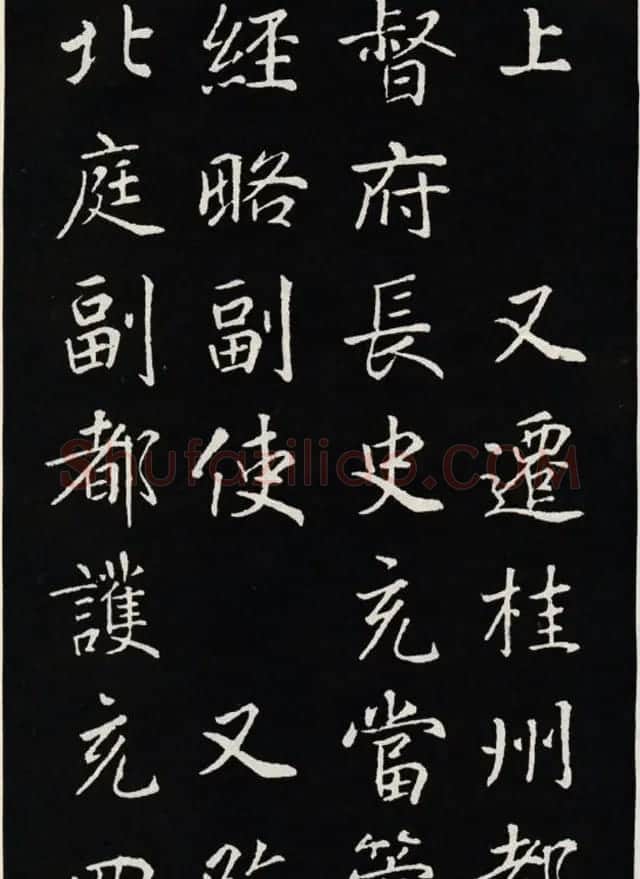 上 又遷桂州都
督府長史充當管
經略副使 又改
北庭副都護充四
Shufaziliao.COM